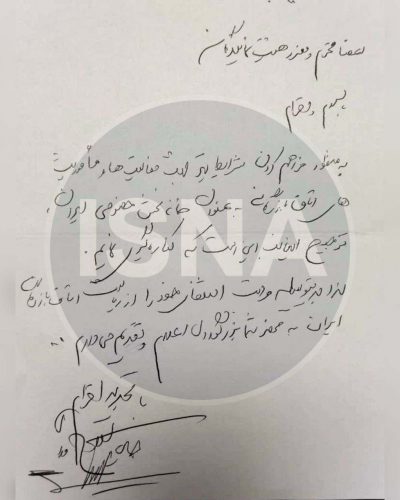 اعضا محترم و معزز هیئت نمایندگان
با سلام و احترام
به منظور فراهم کردن شرایط بهتر جهت فعالیت‌ها و مأموریت
های اتاق بازرگانی به عنوان خانه بخش خصوصی ایران،
ترجیح اینجانب این است که کناره‌گیری نمایم.
لذا بدینوسیله مراتب استعفای خود را از ریاست اتاق بازرگانی
ایران به محضر شما بزرگواران اعلام و تقدیم می‌دارم
با تجدید احترام
ISNA